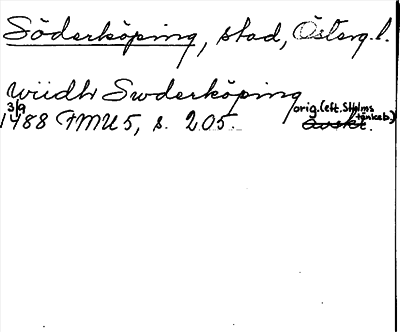 Söderköping, stad, Österg.l.
wiidh Swderköping
3/9 orig. (eft. Sthlms
1488 FMU 5, s. 205. avskr. tänkeb.)